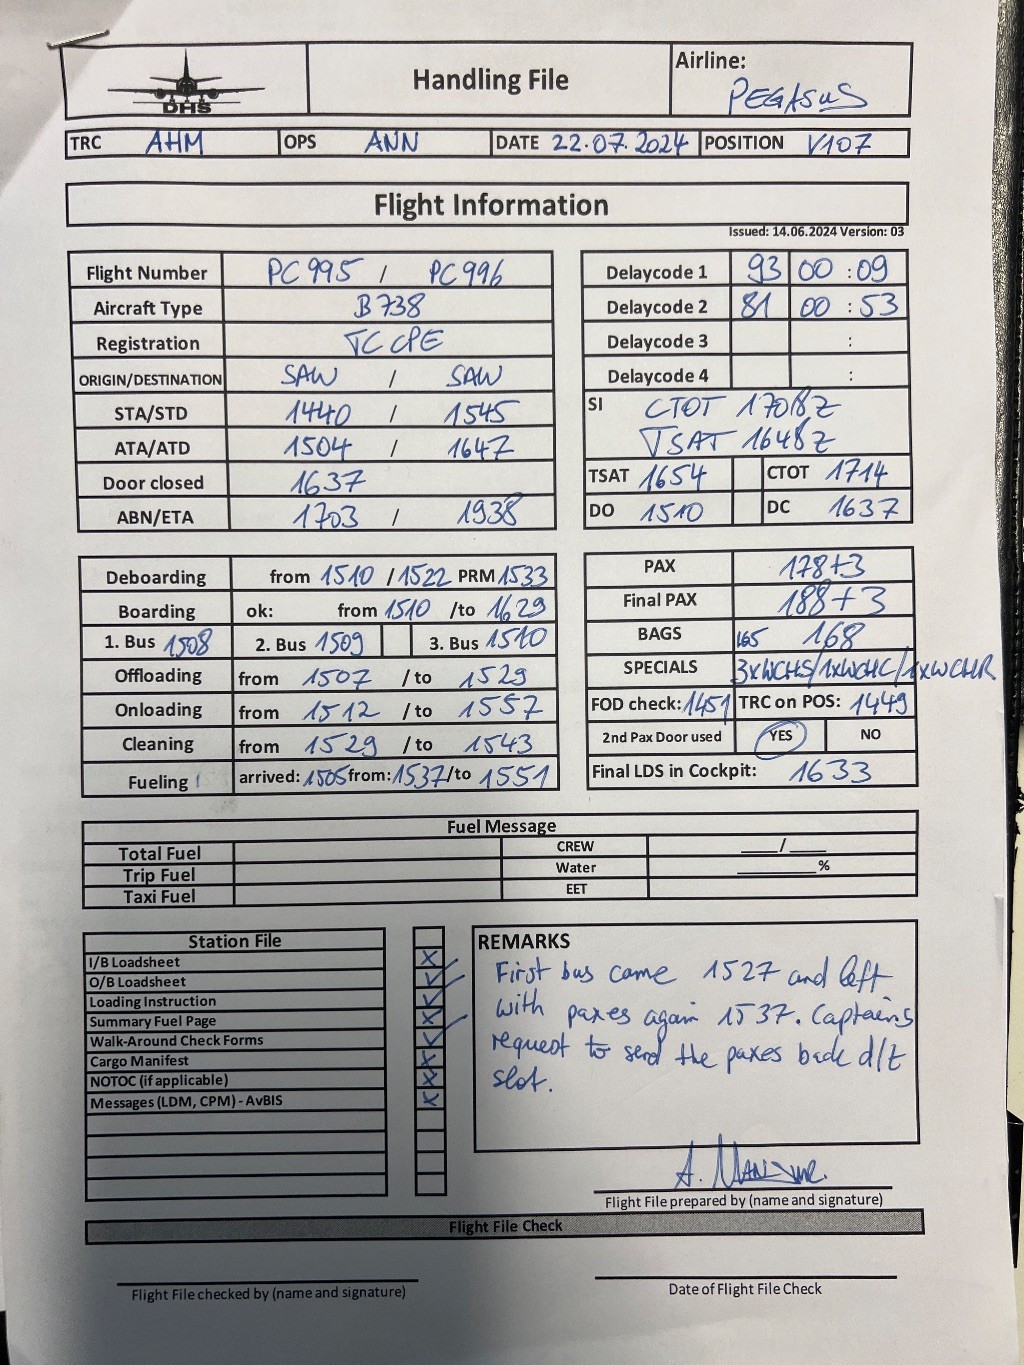 DHS
Handling File
Airline:
PEGASUS
TRC AHM OPS ANN DATE 22.07.2024 POSITION V107
Flight Information
Issued: 14.06.2024 Version: 03
Flight Number PC 995 / PC 996
Aircraft Type B738
Registration TC CPE
ORIGIN/DESTINATION SAW / SAW
STA/STD 1440 / 1545
ATA/ATD 1504 / 1647
Door closed 1637
ABN/ETA 1703 / 1938
Delaycode 1 93 00 : 09
Delaycode 2 81 00 : 53
Delaycode 3 :
Delaycode 4 :
SI CTOT 1708Z
TSAT 1648Z
TSAT 1654 CTOT 1714
DO 1510 DC 1637
Deboarding from 1510 / 1522 PRM 1533
Boarding ok: from 1510 /to 1629
1. Bus 1508 2. Bus 1509 3. Bus 1510
Offloading from 1507 / to 1529
Onloading from 1512 / to 1557
Cleaning from 1529 / to 1543
Fueling arrived: 1505 from: 1537 /to 1551
PAX 178+3
Final PAX 188+3
BAGS 165 168
SPECIALS 3xWCHS/1xWCHC/1xWCHR
FOD check: 1451 TRC on POS: 1449
2nd Pax Door used YES NO
Final LDS in Cockpit: 1633
Fuel Message
Total Fuel CREW ____/____
Trip Fuel Water ________%
Taxi Fuel EET
Station File
I/B Loadsheet X
O/B Loadsheet ✓
Loading Instruction ✓
Summary Fuel Page X
Walk-Around Check Forms ✓
Cargo Manifest X
NOTOC (if applicable) X
Messages (LDM, CPM) - AvBIS X
REMARKS
First bus came 1527 and left
with paxes again 1537. Captains
request to send the paxes back d/t
slot.
A.
Flight File prepared by (name and signature)
Flight File Check
Flight File checked by (name and signature)
Date of Flight File Check